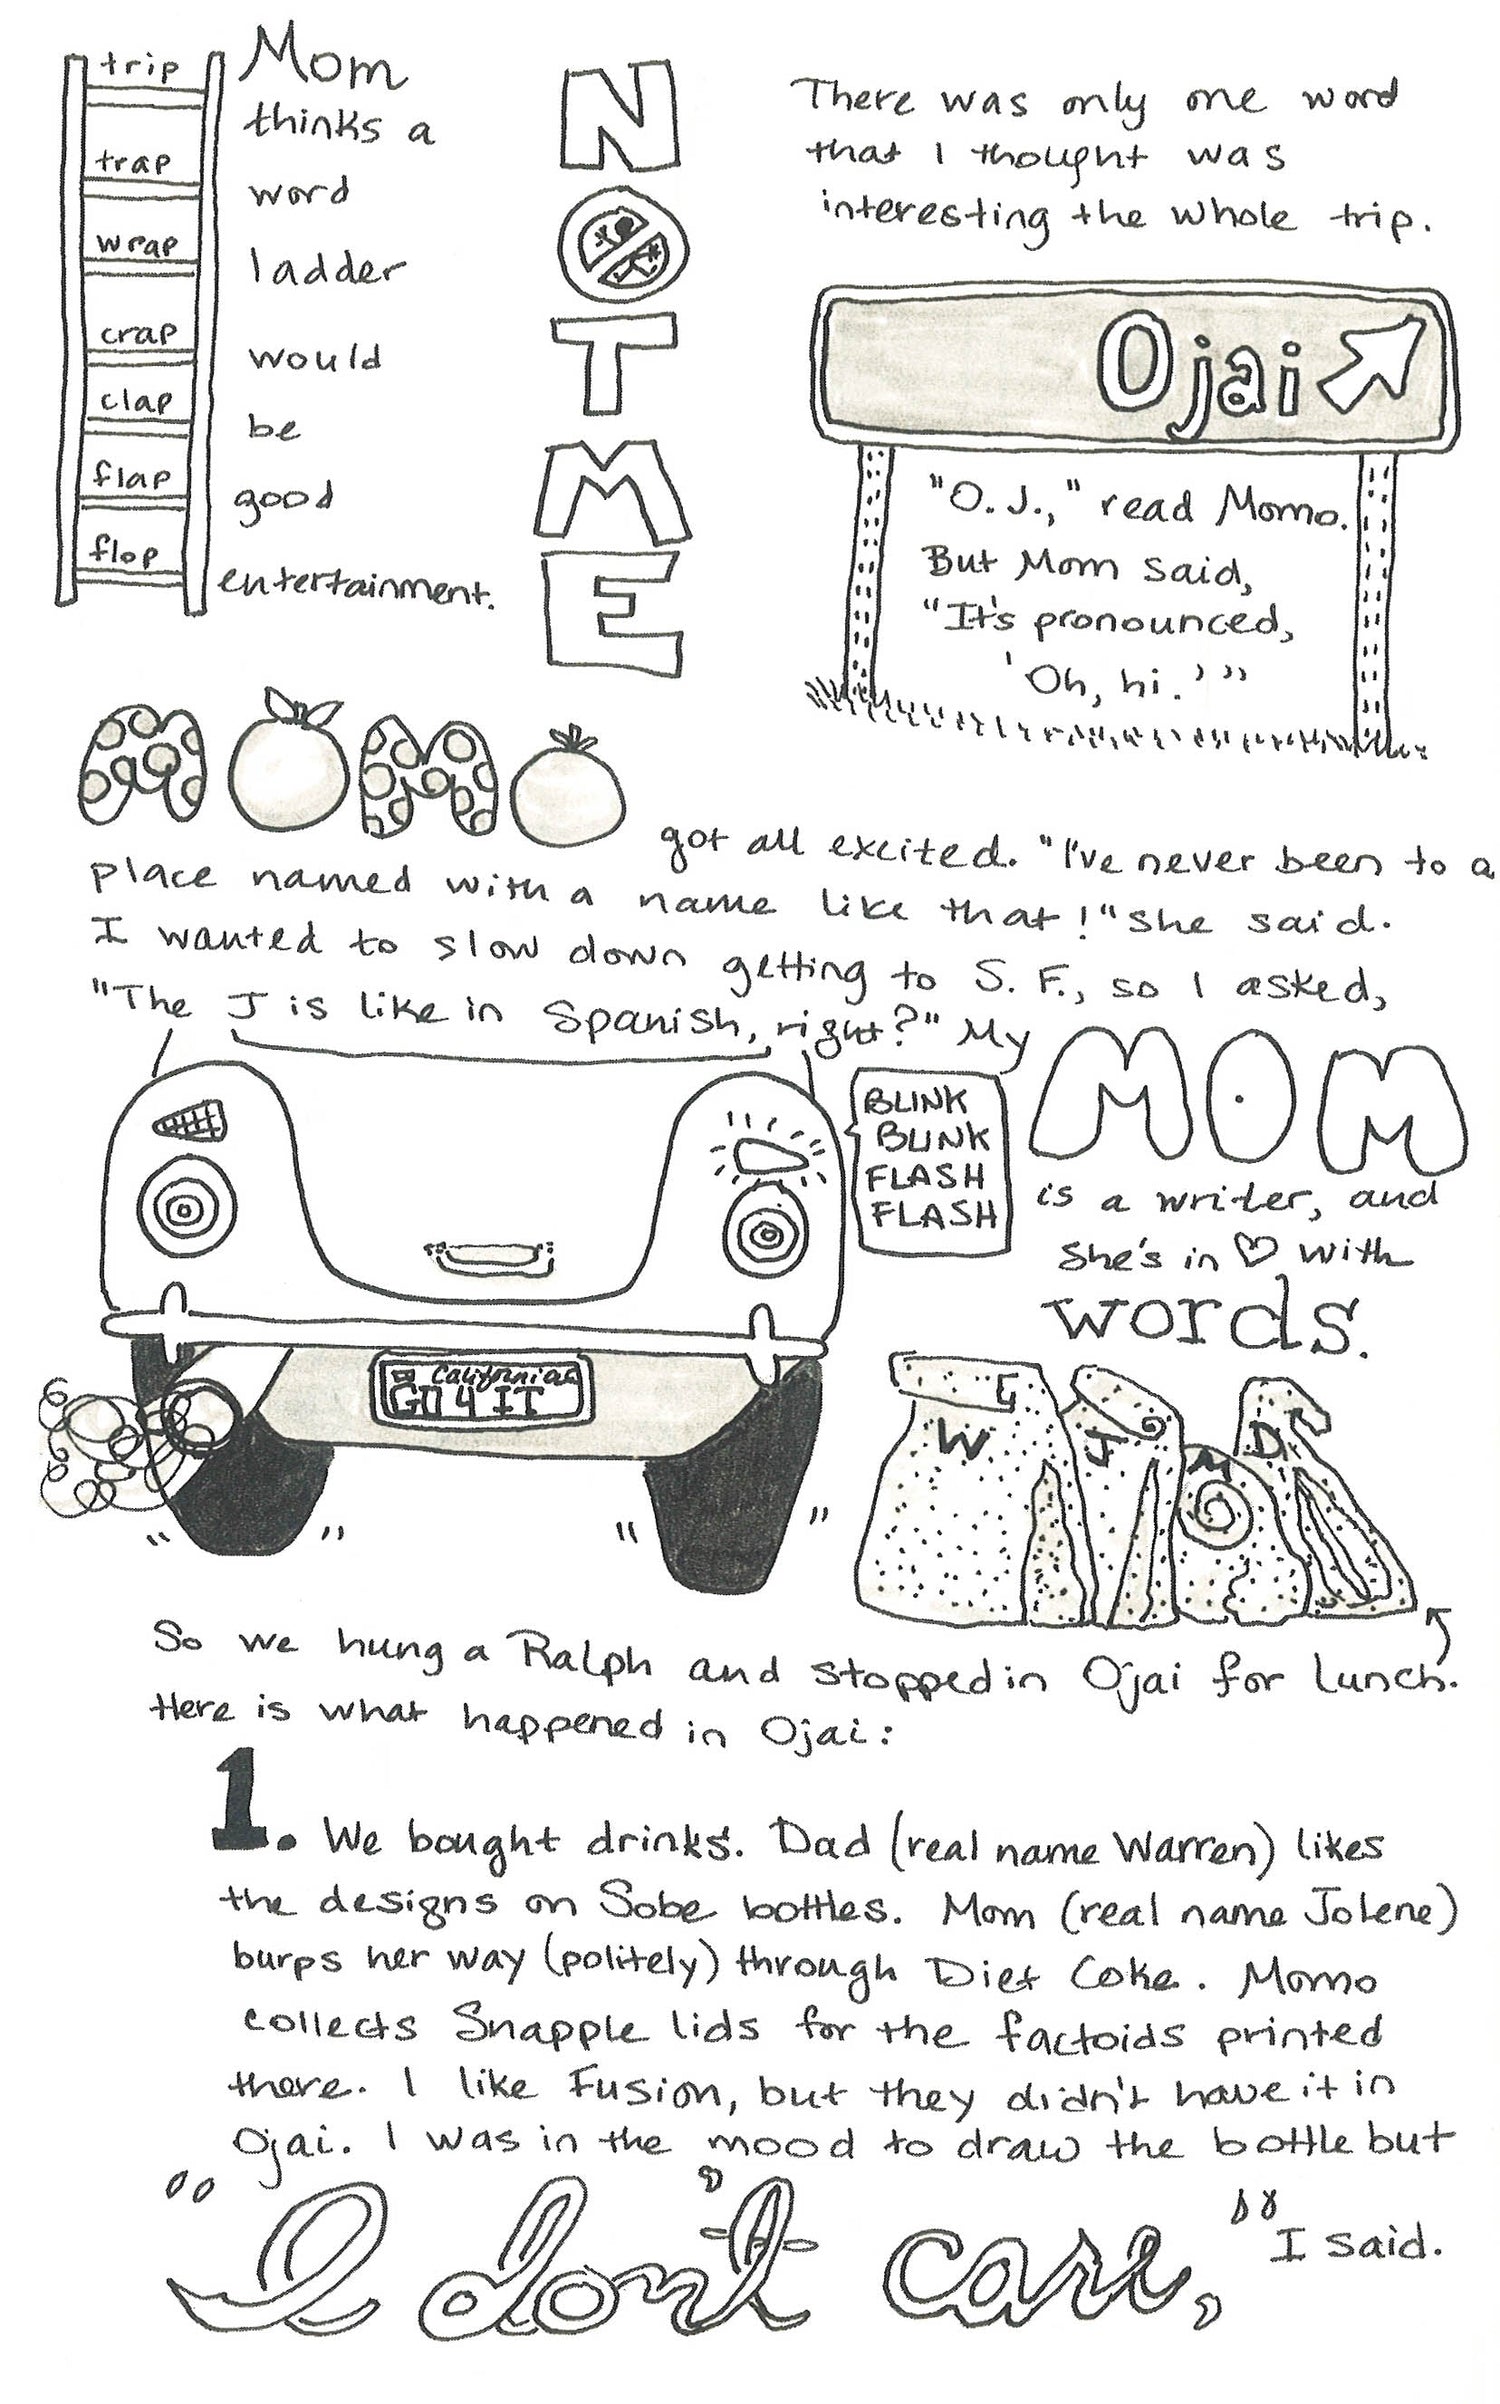 trip
trap
wrap
crap
clap
flap
flop
Mom
thinks a
word
ladder
would
be
good
entertainment.
NOT ME
There was only one word
that I thought was
interesting the whole trip.
Ojai
"O.J.," read Momo.
But Mom said,
"It's pronounced,
'Oh, hi.'"
MOMO
got all excited. "I've never been to a
place named with a name like that!" she said.
I wanted to slow down getting to S.F., so I asked,
"The J is like in Spanish, right?" My
MOM
is a writer, and
she's in ♡ with
words.
BLINK
BLINK
FLASH
FLASH
California
GO 4 IT
W
J
M
D
So we hung a Ralph and stopped in Ojai for lunch.
Here is what happened in Ojai:
1. We bought drinks. Dad (real name Warren) likes
the designs on Sobe bottles. Mom (real name Jolene)
burps her way (politely) through Diet Coke. Momo
collects Snapple lids for the factoids printed
there. I like Fusion, but they didn't have it in
Ojai. I was in the mood to draw the bottle but
"I don't care," I said.